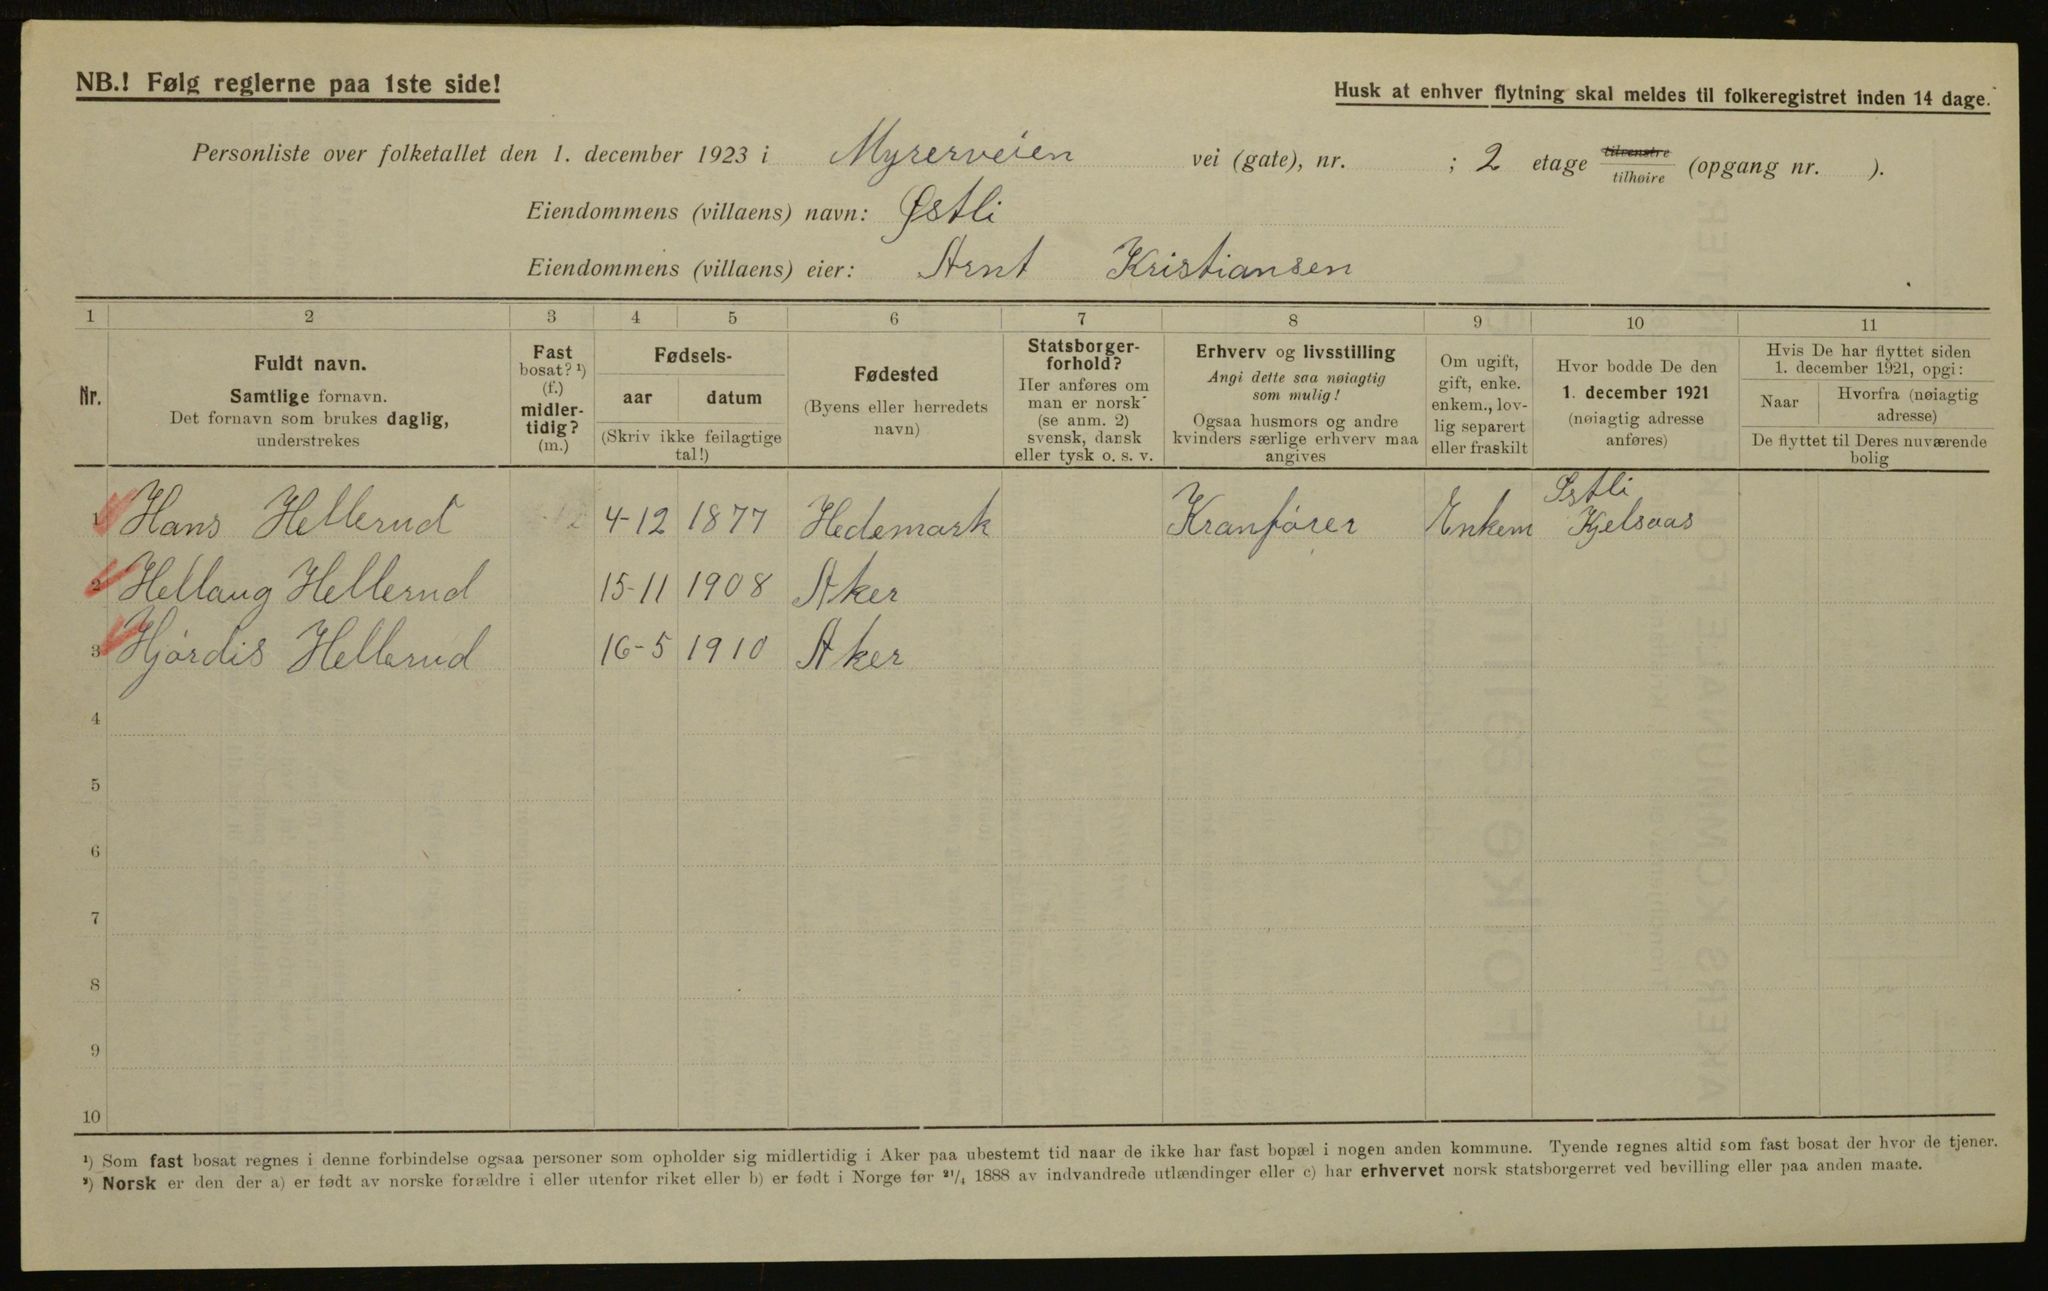 NB.! Følg reglerne paa 1ste side!
Husk at enhver flytning skal meldes til folkeregistret inden 14 dage.
Personliste over folketallet den 1. december 1923 i Myrerveien vei (gate), nr. ; 2 etage tilvenstre / tilhøire (opgang nr. ).
Eiendommens (villaens) navn: Østli
Eiendommens (villaens) eier: Arnt Kristiansen
1 2 3 4 5 6 7 8 9 10 11
Nr.
Fuldt navn.
Samtlige fornavn.
Det fornavn som brukes daglig,
understrekes
Fast
bosat? ¹)
(f.)
midler-
tidig?
(m.)
Fødsels-
aar datum
(Skriv ikke feilagtige
tal!)
Fødested
(Byens eller herredets
navn)
Statsborger-
forhold?
Her anføres om
man er norsk
(se anm. 2)
svensk, dansk
eller tysk o. s. v.
Erhverv og livsstilling
Angi dette saa nøiagtig
som mulig!
Ogsaa husmors og andre
kvinders særlige erhverv maa
angives
Om ugift,
gift, enke.
enkem., lov-
lig separert
eller fraskilt
Hvor bodde De den
1. december 1921
(nøiagtig adresse
anføres)
Hvis De har flyttet siden
1. december 1921, opgi:
Naar
Hvorfra (nøiagtig
adresse)
De flyttet til Deres nuværende
bolig
Østli
1 Hans Hellerud 4-12 1877 Hedemark Kranfører Enkem Kjelsaas
2 Hellaug Hellerud 15-11 1908 Aker
3 Hjørdis Hellerud 16-5 1910 Aker
4
5
6
7
8
9
10
¹) Som fast bosat regnes i denne forbindelse ogsaa personer som opholder sig midlertidig i Aker paa ubestemt tid naar de ikke har fast bopæl i nogen anden kommune. Tyende regnes altid som fast bosat der hvor de tjener.
²) Norsk er den der a) er født av norske forældre i eller utenfor riket eller b) er født i Norge før ²¹/₄ 1888 av indvandrede utlændinger eller c) har erhvervet norsk statsborgerret ved bevilling eller paa anden maate.